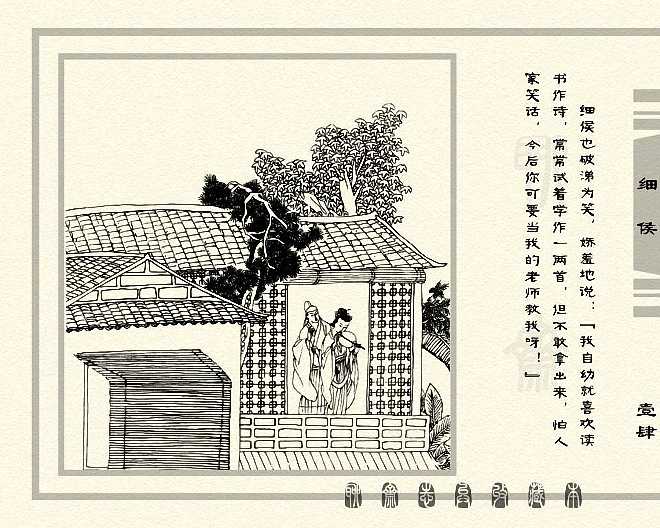 细侯也破涕为笑，娇羞地说：“我自幼就喜欢读
书作诗，常常试着学作一两首，但不敢拿出来，怕人
家笑话，今后你可要当我的老师教我呀！”
细侯
壹肆